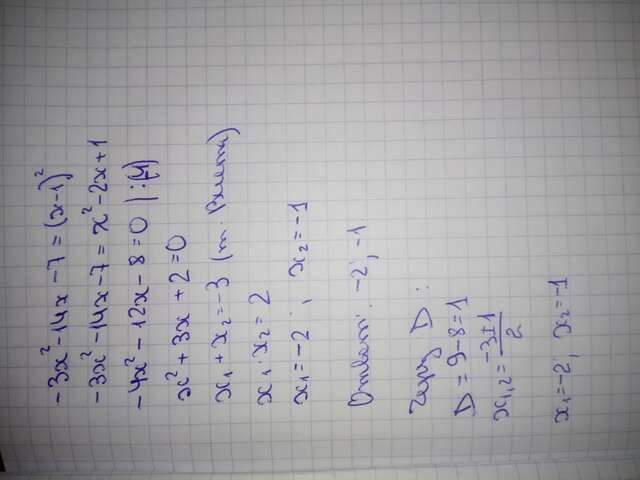 -3x² -14x -7 = (x-1)²
-3x² -14x -7 = x² -2x +1
-4x² -12x -8 = 0 | :(-4)
x² +3x +2 = 0
x₁ + x₂ = -3 (т. Виета)
x₁ · x₂ = 2
x₁ = -2 ; x₂ = -1
Ответ: -2 ; -1
Через D :
D = 9-8 = 1
x₁,₂ = (-3±1)/2
x₁ = -2 ; x₂ = -1